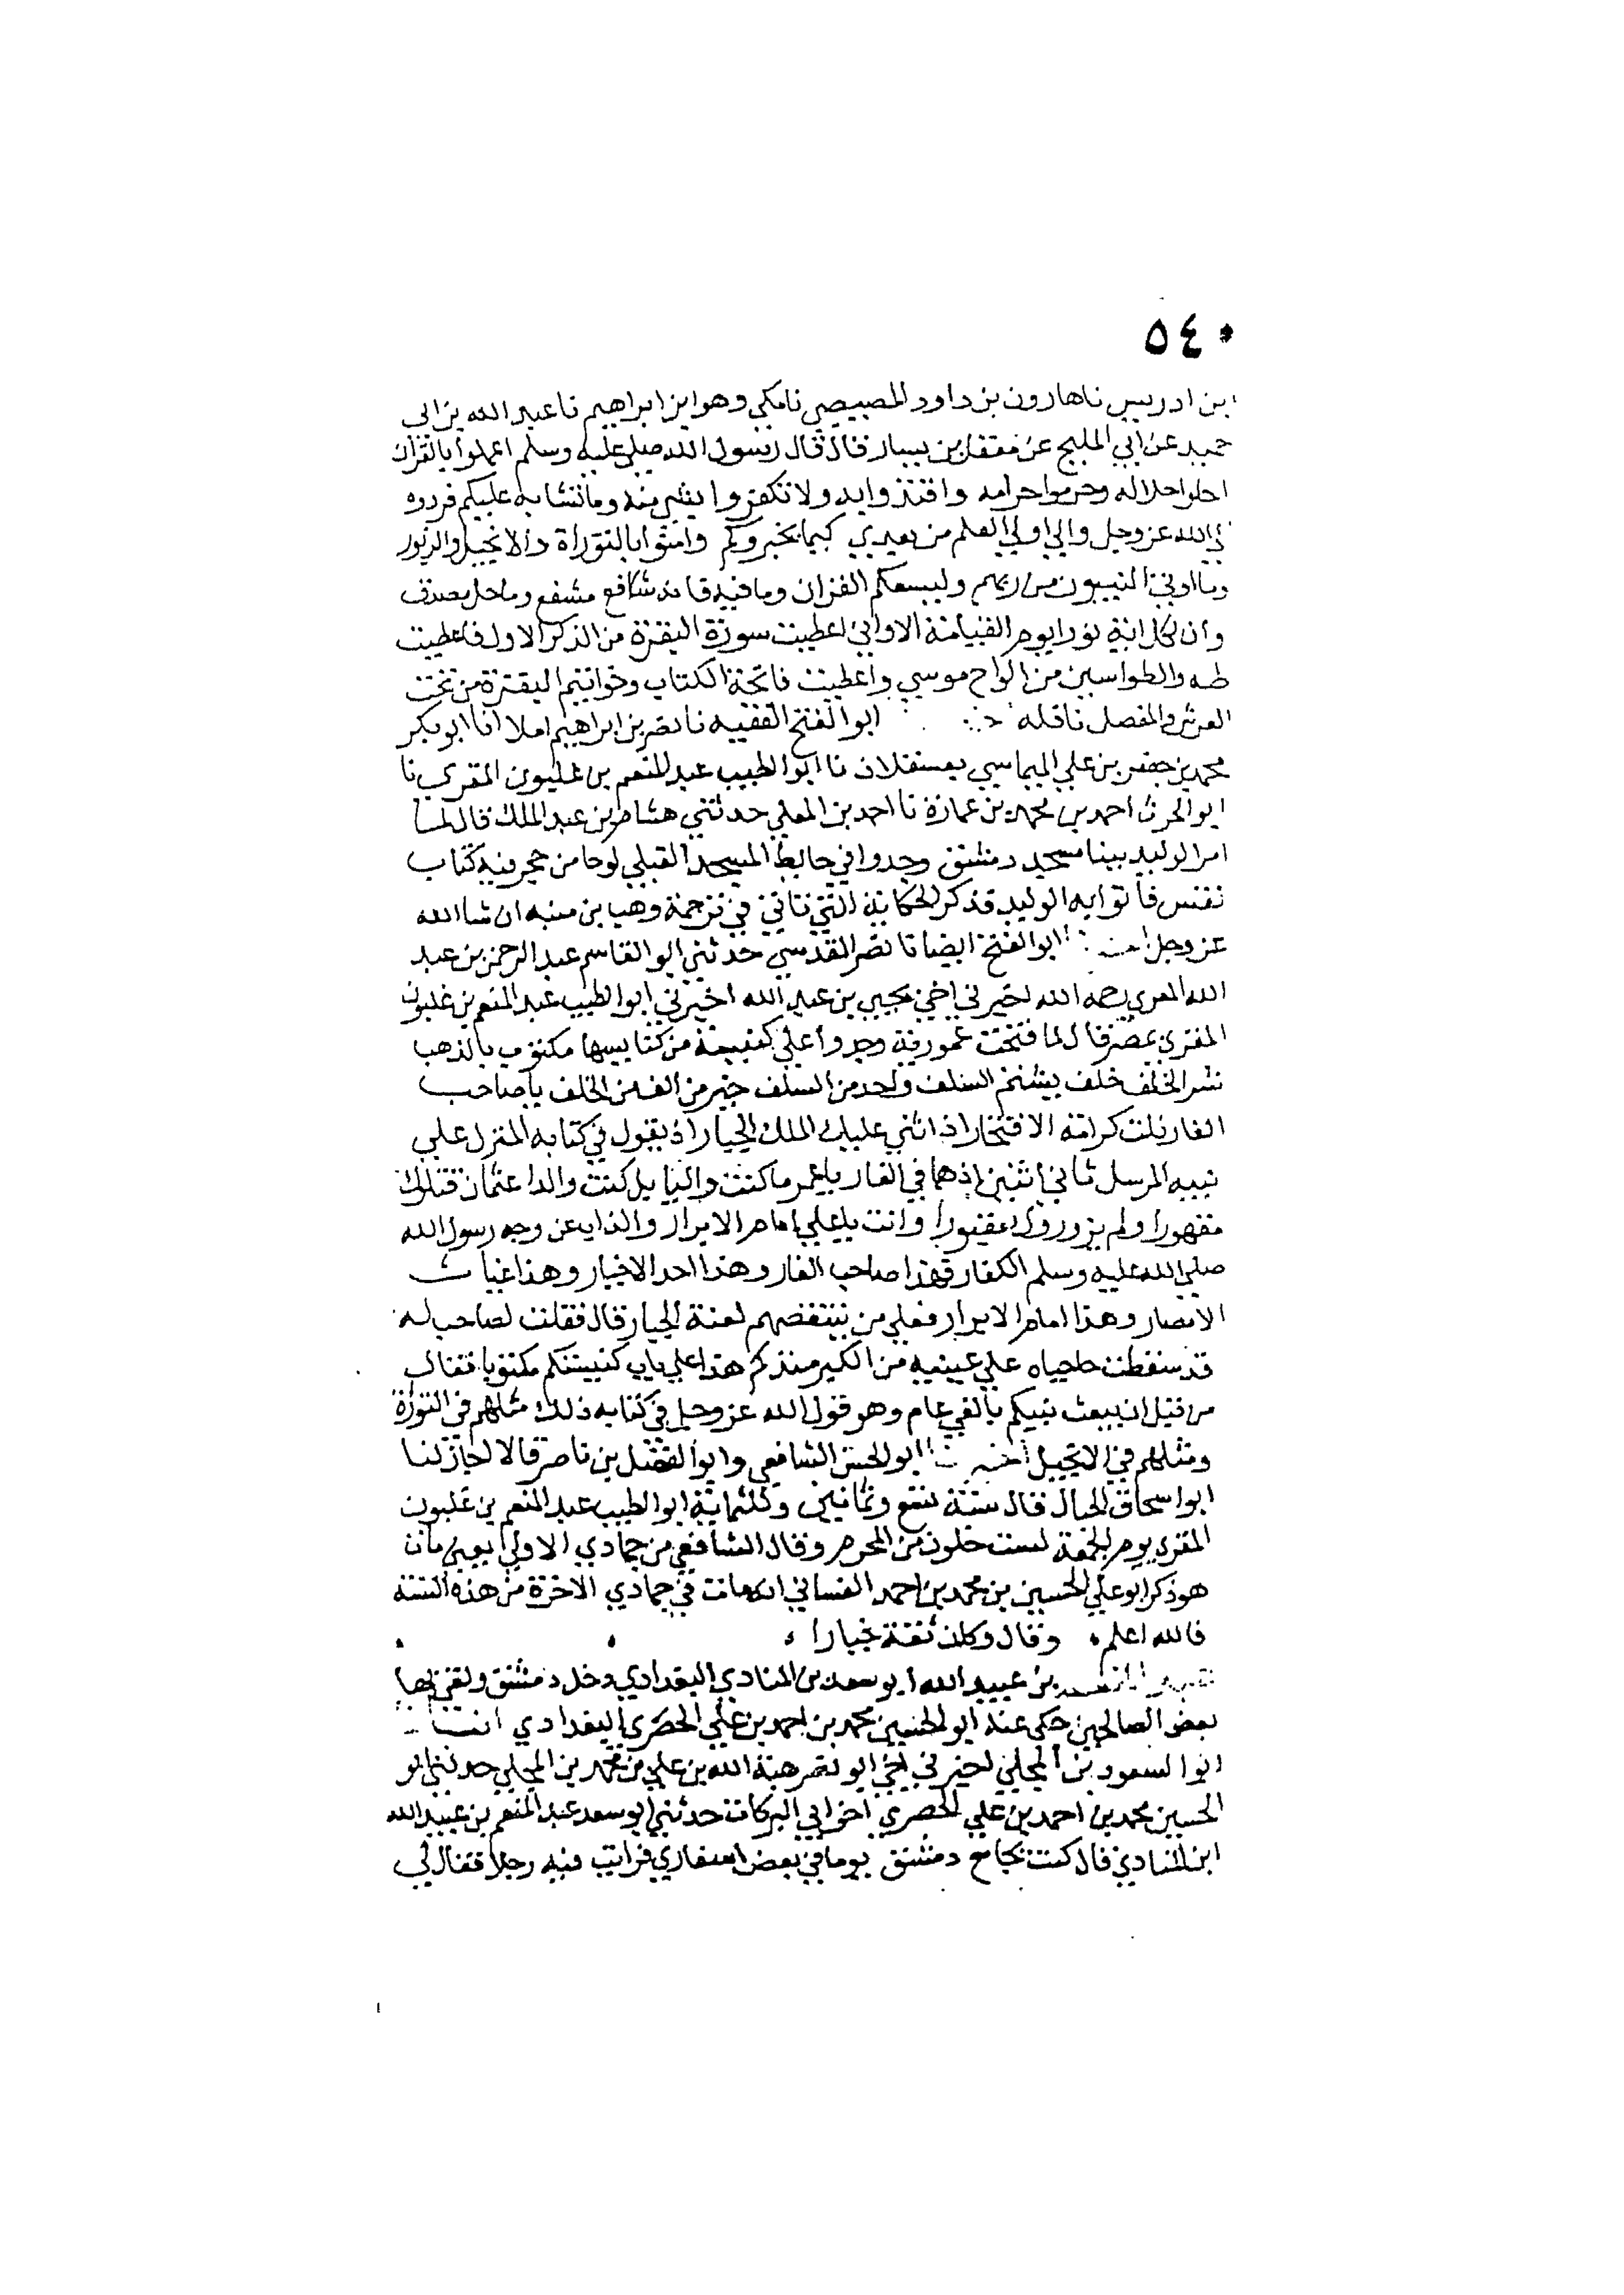 ٥٤٠
بن ادريس نا هارون بن داود المصيصي نا مكي وهو ابن ابراهيم نا عبد الله بن ابي
حميد عن ابي المليح عن معقل بن يسار قال قال رسول الله صلى عليه وسلم اعملوا بالقران
احلوا حلاله وحرموا حرامه واقتدوا به ولا تكفروا بشي منه وما تشابه عليكم فردوه
الى الله عز وجل والي اولي العلم من بعدي كيما يخبروكم وامنوا بالتوراة والانجيل والزبور
وما اوتي النبيون من ربهم وليسعكم القران وما فيه فانه شافع مشفع وماحل مصدق
وان لكل اية نورا يوم القيامة الا واني اعطيت سورة البقرة من الذكر الاول واعطيت
طه والطواسين من الواح موسي واعطيت فاتحة الكتاب وخواتيم البقرة من تحت
العرش والمفصل نافلة ابو الفتح الفقيه نا نصر بن ابراهيم املا انا ابو بكر
محمد بن جعفر بن علي الميماسي بعسقلان نا ابو الطيب عبد المنعم بن غلبون المقري نا
ابو الحرث احمد بن محمد بن عمارة نا احمد بن المعلي حدثني هشام بن عبد الملك قال لما
امر الوليد ببنا مسجد دمشق وجدوا في حايط المسجد القبلي لوحا من حجر فيه كتاب
نقش فاتوا به الوليد فذكر الحكاية التي تاتي في ترجمة وهب بن منبه ان شا الله
عز وجل ابو الفتح ايضا نا نصر المقدسي حدثني ابو القاسم عبد الرحمن بن عبد
الله المعري رحمه الله اخبرني اخي يحيي بن عبد الله اخبرني ابو الطيب عبد المنعم بن غلبون
المقري بمصر قال لما فتحت عمورية وجدوا علي كنيسة من كنايسها مكتوب بالذهب
شر الخلف خلف يشتم السلف وواحد من السلف خير من الف من الخلف يا صاحب
الغار نلت كرامة الافتخار اذ اثني عليك الملك الجبار اذ يقول في كتابه المنزل علي
نبيه المرسل ثاني اثنين اذ هما في الغار يا عمر ما كنت واليا بل كنت والدا عثمان قتلوك
مقهورا ولم يزوروك مقبورا وانت يا علي امام الابرار والذاب عن وجه رسول الله
صلي الله عليه وسلم الكفار فهذا صاحب الغار وهذا احد الاخيار وهذا غياث
الامصار وهذا امام الابرار فعلي من ينتقصهم لعنة الجبار قال فقلت لصاحب له
قد سقطت حاجباه علي عينيه من الكبر منذ كم هذا علي باب كنيستكم مكتوبا فقال
من قبل ان يبعث نبيكم بالفي عام وهو قول الله عز وجل في كتابه ذلك مثلهم في التوراة
ومثلهم في الانجيل ابو الحسن الشافعي وابو الفضل بن ناصر قالا اجاز لنا
ابو اسحاق الحبال قال سنة تسع وثمانين وثلثماية ابو الطيب عبد المنعم بن غلبون
المقري يوم الجمعة لست خلون من المحرم وقال الشافعي من جمادي الاولي يعني مات
هو ذكر ابو علي الحسين بن محمد بن احمد الغساني انه مات في جمادي الاخرة من هذه السنة
فالله اعلم وقال وكان ثقة خيارا
بن عبيد الله ابو سعد بن المنادي البغدادي دخل دمشق ولقي بها
بعض الصالحين حكى عنه ابو الحسين محمد بن احمد بن علي الحصري البغدادي
ابو السعود بن المجلي اخبرني اخي ابو نصر هبة الله بن علي بن محمد بن المجلي حدثني ابو
الحسين محمد بن احمد بن علي الحصري اخو ابي البركات حدثني ابو سعد عبد المنعم بن عبيد الله
ابن المنادي قال كنت بجامع دمشق يوما في بعض اسفاري فرايت فيه رجلا فقال لي